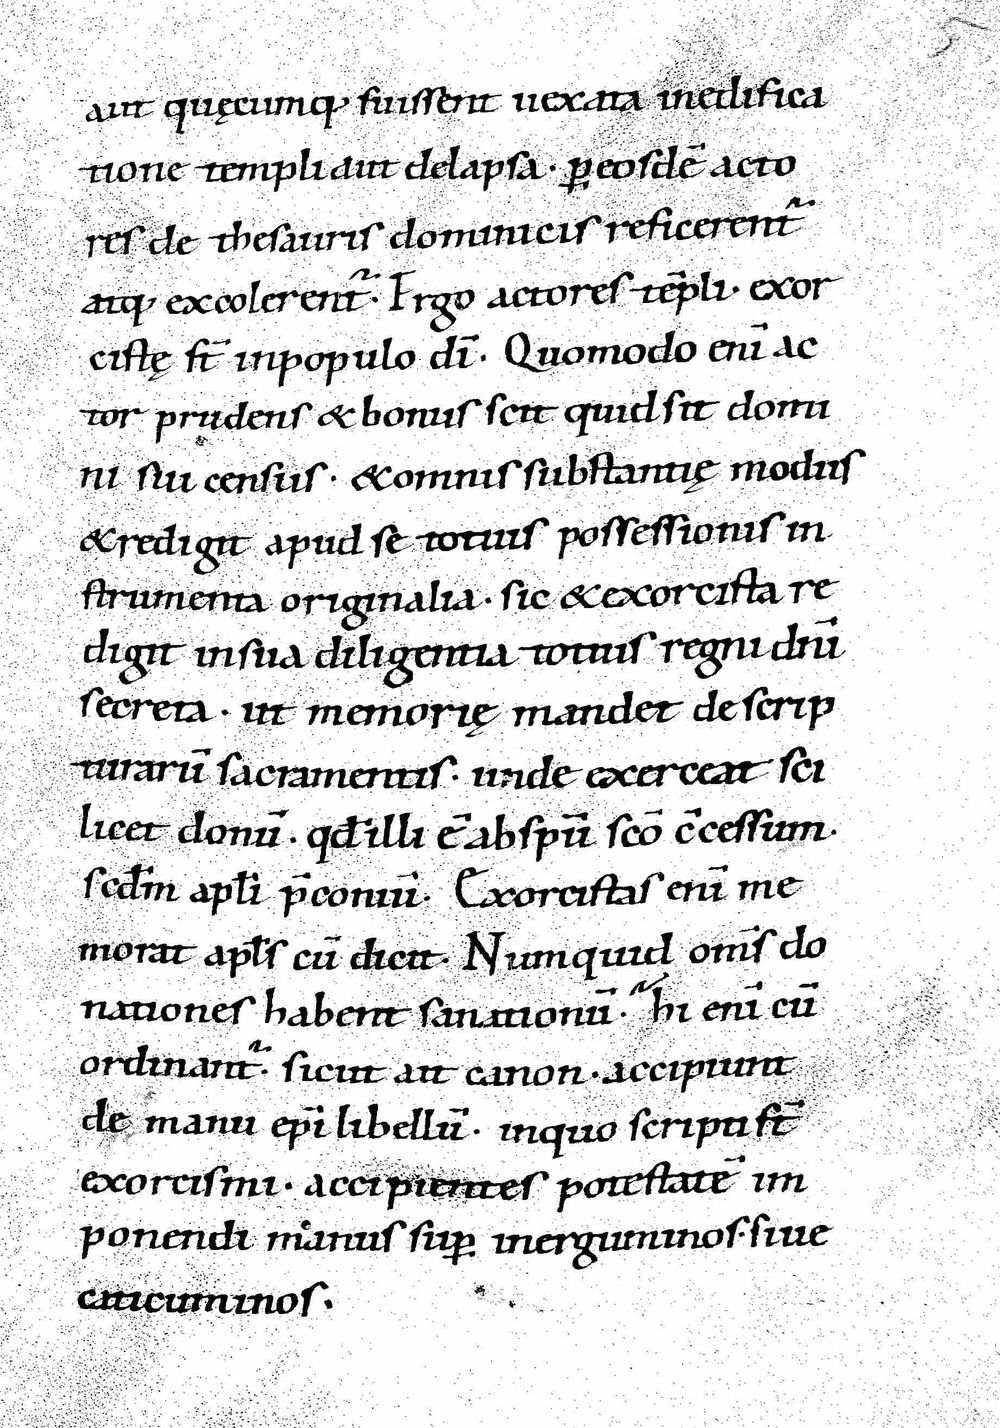 aut quęcumq; fuissent uexata inedifica
tione templi aut delapsa · p̱ eosdē acto
res de thesauris dominicis reficerent᷑
atq; excolerent᷑ · Ergo actores tēpli · exor
cistę st̄ inpopulo dī · Quomodo enī ac
tor prudens & bonus scit quid sit domi
ni sui census · & omnis substantię modus
& redigit apud se totius possessionis in
strumenta originalia · sic & exorcista re
digit insua diligentia totius regni dnī
secreta · ut memorię mandet de scrip
turarū sacramentis · unde exerceat sci
licet donū · qd̄ illi ē ab spū scō c̄cessum ·
scdm̄ apłi p̄coniū · Exorcistas enī me
morat apłs cū dicit · Numquid om̄s do
nationes habent sanationū · hi enī cū
ordinant᷑ · sicut ait canon · accipiunt
de manu epī libellū · inquo scripti st̄
exorcismi · accipientes potestatē im
ponendi manus sup̱ inerguminos · siue
caticuminos ·